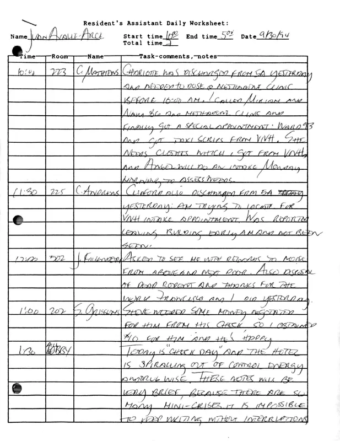 Resident's Assistant Daily Worksheet:
Name Juan Avalle-Arce Start time End time 5PM Date 9/30/94
Total time
Time Room Name Task-comments, notes
223 C Charlotte was discharged from yesterday
and needed to dose a methadone clinic
before 10:00 AM. I called Miriam and
and methadone clinic and
finally got a special appointment. Ward 93
and got taxi scrips from VNH. She
needs clothes which I got from VNH,
and Angel will do an intake Monday
morning to assess needs.
11:30 225 C Andrews Clifford also discharged from
yesterday. Am trying to locate for
VNH intake appointment. Was reported
leaving building early AM and not been
seen.
12:00 502 J. Asked to see me with regards to noise
from above and next door. Also
of door report and thanks for the
work Francisco and I did yesterday
1:00 202 S. Steve needed some money
for him from his check, so I obtained
$10 for him and he's happy.
1:30 Lobby Today is "check day" and the hotel
is spiralling out of control energy
and drug wise. These notes will be
very brief, because there are so
many mini-crises it is impossible
to keep writing without interruptions